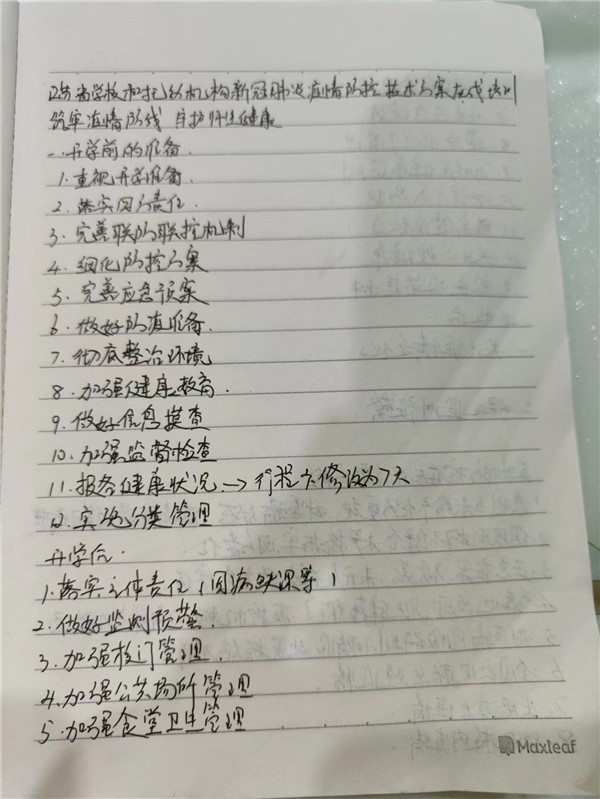 江苏省学校和托幼机构新冠肺炎疫情防控技术方案在线培训
筑牢疫情防线 守护师生健康
一.开学前的准备.
1.重视开学准备.
2.落实四方责任.
3.完善联防联控机制
4.细化防控方案
5.完善应急预案
6.做好防疫准备.
7.彻底整治环境
8.加强健康教育.
9.做好信息摸查
10.加强监督检查
11.报备健康状况.→行程卡修改为7天
12.实施分类管理
开学后.
1.落实主体责任(因病缺课等)
2.做好监测预警.
3.加强校门管理.
4.加强公共场所管理
5.加强食堂卫生管理
Maxleaf